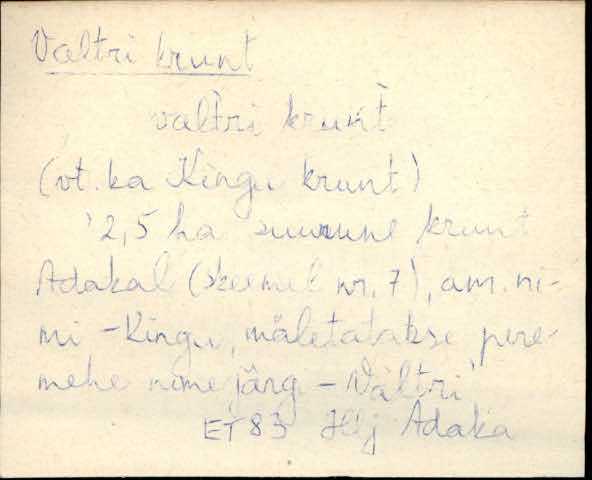 Valtri krunt
valtri krunt
(vt. ka Kingu krunt)
2,5 ha suurune krunt
Adakal (skeemil nr. 7), am. ni-
mi - Kingu, mäletatakse pere-
mehe nime järg - Valtri
ET 83 Hlj Adaka